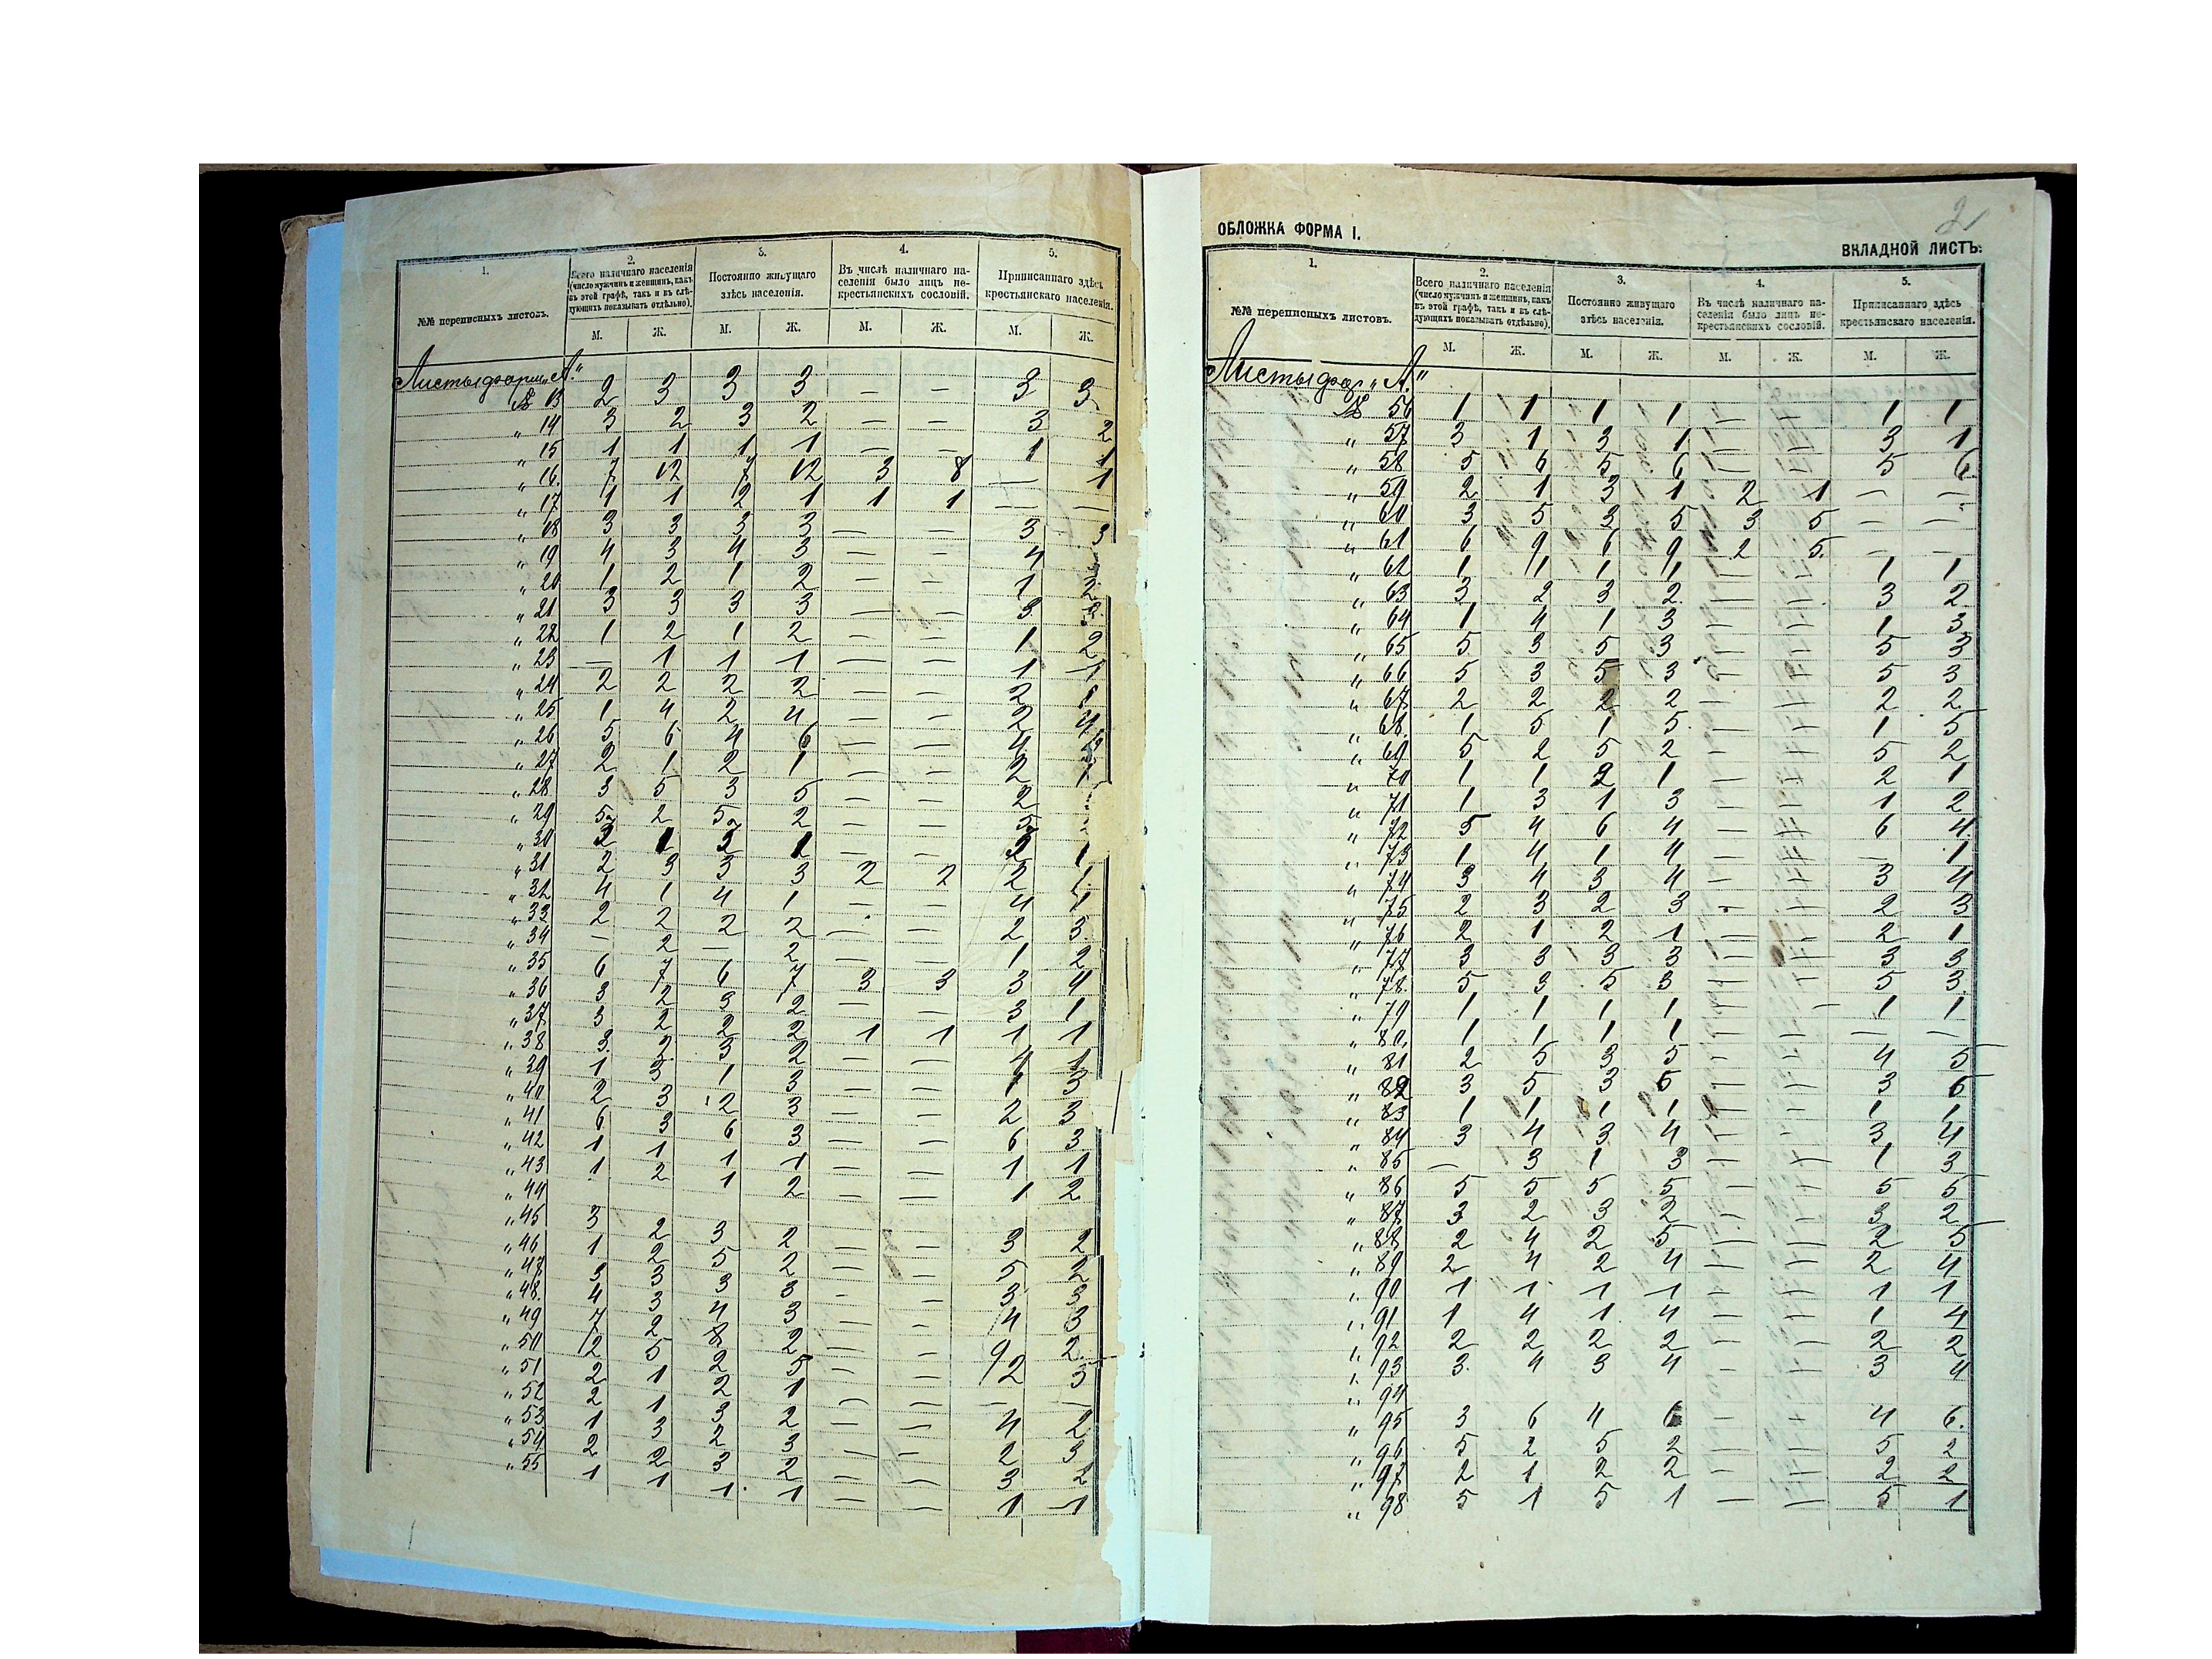 1.
2.
3.
4.
5.
№№ переписныхъ листовъ.
Всего наличнаго населенія (число мужчинъ и женщинъ, какъ въ этой графѣ, такъ и въ слѣдующихъ показывать отдѣльно).
Постоянно живущаго здѣсь населенія.
Въ числѣ наличнаго населенія было лицъ некрестьянскихъ сословій.
Приписаннаго здѣсь крестьянскаго населенія.
М. Ж. М. Ж. М. Ж. М. Ж.
Листы форм. „А."
№ 13 2 3 3 3 — — 3 3
„ 14 3 2 3 2 — — 3 2
„ 15 1 1 1 1 — — 1 1
„ 16. 7 12 7 12 3 8 — 1
„ 17 1 1 2 1 1 1 — —
„ 18 3 3 3 3 — — 3 3
„ 19 4 3 4 3 — — 4
„ 20 1 2 1 2 — — 1 2
„ 21 3 3 3 3 — — 3 3
„ 22 1 2 1 2 — — 1 2
„ 23 — 1 1 1 — — 1
„ 24 2 2 2 2 — — 2
„ 25 1 4 2 4 — — 2 4
„ 26 5 6 4 6 — — 4
„ 27 2 1 2 1 — — 2 1
„ 28 3 5 3 5 — — 2
„ 29 5 2 5 2 — — 5
„ 30 1 1 — — 1
„ 31 2 3 3 3 2 2 2 1
„ 32 4 1 4 1 — — 4
„ 33 2 2 2 2 — — 2 3
„ 34 — 2 — 2 — — 1 2
„ 35 6 7 6 7 3 3 3 4
„ 36 3 2 3 2 — — 3 1
„ 37 3 2 2 2 1 1 1 1
„ 38 3 2 3 2 — —
„ 39 1 3 1 3 — — 1 3
„ 40 2 3 2 3 — — 2 3
„ 41 6 3 6 3 — — 6 3
„ 42 1 1 1 1 — — 1 1
„ 43 1 2 1 2 — — 1 2
„ 44
„ 45 3 2 3 2 — — 3 2
„ 46 1 2 5 2 — — 5 2
„ 47 3 3 3 3 — — 3 3
„ 48. 4 3 4 3 — — 4 3
„ 49 7 2 8 2 — — 9 2
„ 50 12 5 2 5 — — 12 3
„ 51 2 1 2 1 — — — —
„ 52 2 1 3 2 — — 4 2
„ 53 1 3 2 3 — — 2 3
„ 54 2 2 3 2 — — 3 2
„ 55 1 1 1 1 — — 1 1
ОБЛОЖКА ФОРМА I.
21
ВКЛАДНОЙ ЛИСТЪ.
1.
2.
3.
4.
5.
№№ переписныхъ листовъ.
Всего наличнаго населенія (число мужчинъ и женщинъ, какъ въ этой графѣ, такъ и въ слѣдующихъ показывать отдѣльно).
Постоянно живущаго здѣсь населенія.
Въ числѣ наличнаго населенія было лицъ некрестьянскихъ сословій.
Приписаннаго здѣсь крестьянскаго населенія.
М. Ж. М. Ж. М. Ж. М. Ж.
Листы фор. „А."
№ 56 1 1 1 1 — — 1 1
„ 57 3 1 3 1 — — 3 1
„ 58 5 6 5 6 — — 5 6
„ 59 2 1 3 1 2 1 — —
„ 60 3 5 3 5 3 5 — —
„ 61 6 9 6 9 2 5. — —
„ 62 1 1 1 1 — — 1 1
„ 63 3 2 3 2 — — 3 2
„ 64 1 4 1 3 — — 1 3
„ 65 5 3 5 3 — — 5 3
„ 66 5 3 5 3 — — 5 3
„ 67 2 2 2 2 — — 2 2
„ 68. 1 5 1 5 — — 1 5
„ 69 5 2 5 2 — — 5 2
„ 70 1 1 2 1 — — 2 1
„ 71 1 3 1 3 — — 1 2
„ 72 5 4 6 4 — — 6 4
„ 73 1 4 1 4 — — — 1
„ 74 3 4 3 4 — — 3 4
„ 75 2 3 2 3 — — 2 3
„ 76 2 1 2 1 — — 2 1
„ 77 3 3 3 3 — — 3 3
„ 78. 5 3 5 3 — — 5 3.
„ 79 1 1 1 1 — — 1 1
„ 80. 1 1 1 1 — — — —
„ 81 2 5 3 5 — — 4 5
„ 82 3 5 3 6 — — 3 6
„ 83 1 1 1 1 — — 1 1
„ 84 3 4 3 4 — — 3 4
„ 85 — 3 1 3 — — 1 3
„ 86 5 5 5 5 — — 5 5
„ 87 3 2 3 2 — — 3 2
„ 88 2 4 2 5 — — 2 5
„ 89 2 4 2 4 — — 2 4
„ 90 1 1 1 1 — — 1 1
„ 91 1 4 1 4 — — 1 4
„ 92 2 2 2 2 — — 2 2
„ 93 3. 4 3 4 — — 3 4
„ 94
„ 95 3 6 4 6 — — 4 6.
„ 96 5 2 5 2 — — 5 2
„ 97 2 1 2 2 — — 2 2
„ 98 5 1 5 1 — — 5 1